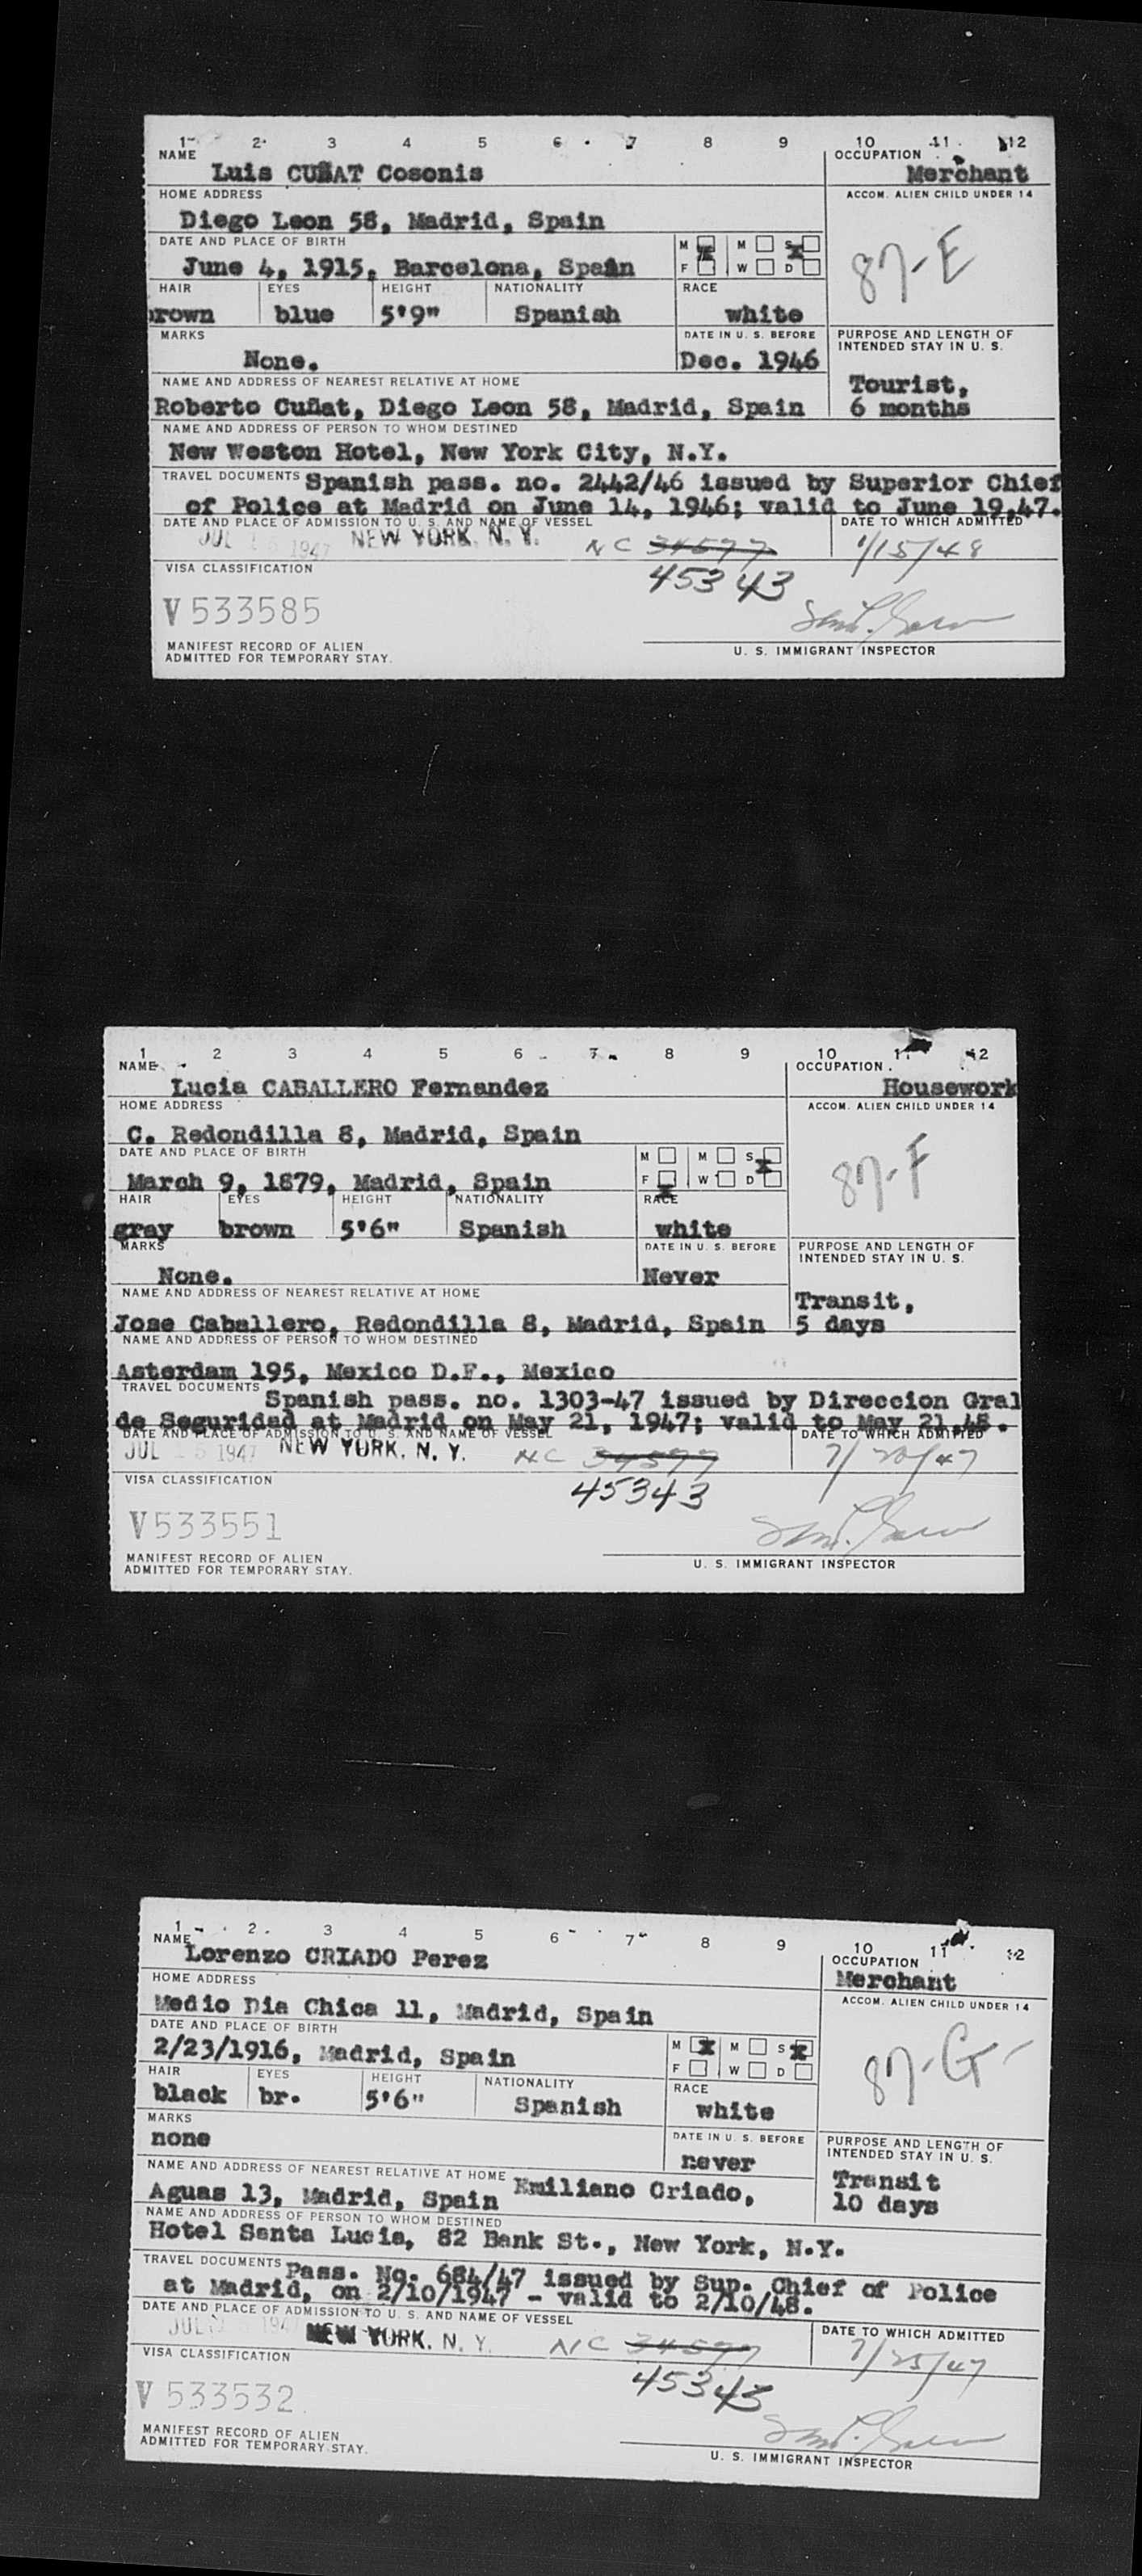 1 2 3 4 5 6 7 8 9 10 11 12
NAME OCCUPATION
Luis CUÑAT Cosonis Merchant
HOME ADDRESS ACCOM. ALIEN CHILD UNDER 14
Diego Leon 58, Madrid, Spain
DATE AND PLACE OF BIRTH M M S 87-E
June 4, 1915, Barcelona, Spain F W D
HAIR EYES HEIGHT NATIONALITY RACE
brown blue 5'9" Spanish white
MARKS DATE IN U. S. BEFORE PURPOSE AND LENGTH OF INTENDED STAY IN U. S.
None. Dec. 1946
NAME AND ADDRESS OF NEAREST RELATIVE AT HOME Tourist,
Roberto Cuñat, Diego Leon 58, Madrid, Spain 6 months
NAME AND ADDRESS OF PERSON TO WHOM DESTINED
New Weston Hotel, New York City, N.Y.
TRAVEL DOCUMENTS Spanish pass. no. 2442/46 issued by Superior Chief
of Police at Madrid on June 14, 1946; valid to June 19,47.
DATE AND PLACE OF ADMISSION TO U. S. AND NAME OF VESSEL DATE TO WHICH ADMITTED
JUL 1947 NEW YORK, N. Y. NC 34577 1/15/48
VISA CLASSIFICATION 45343
V 533585
MANIFEST RECORD OF ALIEN
ADMITTED FOR TEMPORARY STAY. U. S. IMMIGRANT INSPECTOR
1 2 3 4 5 6 7 8 9 10 11 12
NAME OCCUPATION
Lucia CABALLERO Fernandez Housework
HOME ADDRESS ACCOM. ALIEN CHILD UNDER 14
C. Redondilla 8, Madrid, Spain
DATE AND PLACE OF BIRTH M M S 87-F
March 9, 1879, Madrid, Spain F W D
HAIR EYES HEIGHT NATIONALITY RACE
gray brown 5'6" Spanish white
MARKS DATE IN U. S. BEFORE PURPOSE AND LENGTH OF INTENDED STAY IN U. S.
None. Never
NAME AND ADDRESS OF NEAREST RELATIVE AT HOME Transit,
Jose Caballero, Redondilla 8, Madrid, Spain 5 days
NAME AND ADDRESS OF PERSON TO WHOM DESTINED
Asterdam 195, Mexico D.F., Mexico
TRAVEL DOCUMENTS Spanish pass. no. 1303-47 issued by Direccion Gral
de Seguridad at Madrid on May 21, 1947; valid to May 21,48.
DATE AND PLACE OF ADMISSION TO U. S. AND NAME OF VESSEL DATE TO WHICH ADMITTED
JUL 1947 NEW YORK, N. Y. NC 34577 7/20/47
VISA CLASSIFICATION 45343
V533551
MANIFEST RECORD OF ALIEN
ADMITTED FOR TEMPORARY STAY. U. S. IMMIGRANT INSPECTOR
1 2 3 4 5 6 7 8 9 10 11 12
NAME OCCUPATION
Lorenzo CRIADO Perez Merchant
HOME ADDRESS ACCOM. ALIEN CHILD UNDER 14
Medio Dia Chica 11, Madrid, Spain
DATE AND PLACE OF BIRTH M M S 87-G-
2/23/1916, Madrid, Spain F W D
HAIR EYES HEIGHT NATIONALITY RACE
black br. 5'6" Spanish white
MARKS DATE IN U. S. BEFORE PURPOSE AND LENGTH OF INTENDED STAY IN U. S.
none never
NAME AND ADDRESS OF NEAREST RELATIVE AT HOME Emiliano Criado, Transit
Aguas 13, Madrid, Spain 10 days
NAME AND ADDRESS OF PERSON TO WHOM DESTINED
Hotel Santa Lucia, 82 Bank St., New York, N.Y.
TRAVEL DOCUMENTS Pass. No. 684/47 issued by Sup. Chief of Police
at Madrid, on 2/10/1947 - valid to 2/10/48.
DATE AND PLACE OF ADMISSION TO U. S. AND NAME OF VESSEL DATE TO WHICH ADMITTED
JUL 194 NEW YORK, N. Y. NC 34577 7/25/47
VISA CLASSIFICATION 45343
V 533532
MANIFEST RECORD OF ALIEN
ADMITTED FOR TEMPORARY STAY. U. S. IMMIGRANT INSPECTOR